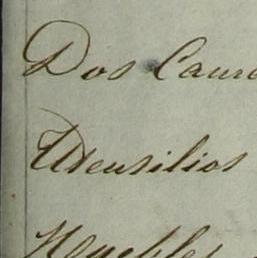 Dos Caure
Utensilios
Muebles